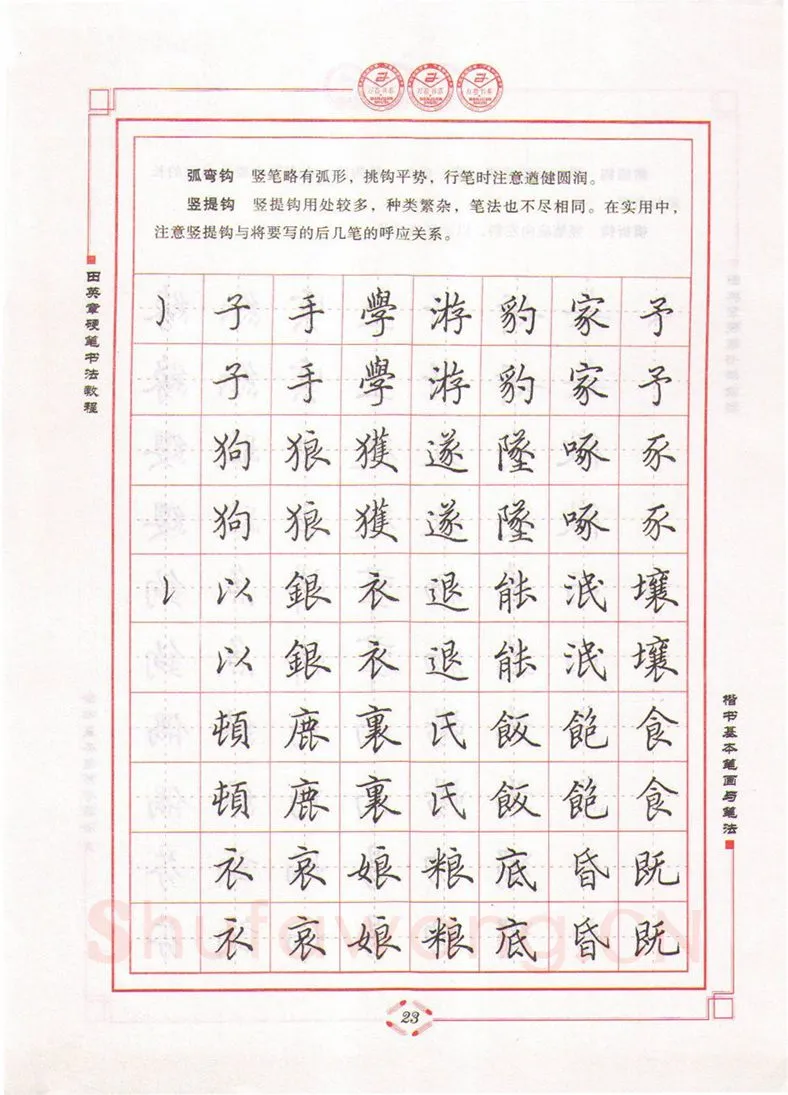 弧弯钩 竖笔略有弧形，挑钩平势，行笔时注意遒健圆润。
竖提钩 竖提钩用处较多，种类繁杂，笔法也不尽相同。在实用中，
注意竖提钩与将要写的后几笔的呼应关系。
田英章硬笔书法教程
子手學游豹家予
子手學游豹家予
狗狼獲遂墜啄豕
狗狼獲遂墜啄豕
以銀衣退能泯壤
以銀衣退能泯壤
頓鹿裏氏飯飽食
頓鹿裏氏飯飽食
衣哀娘粮底昏既
衣哀娘粮底昏既
楷书基本笔画与笔法
Shufawang.CN
23